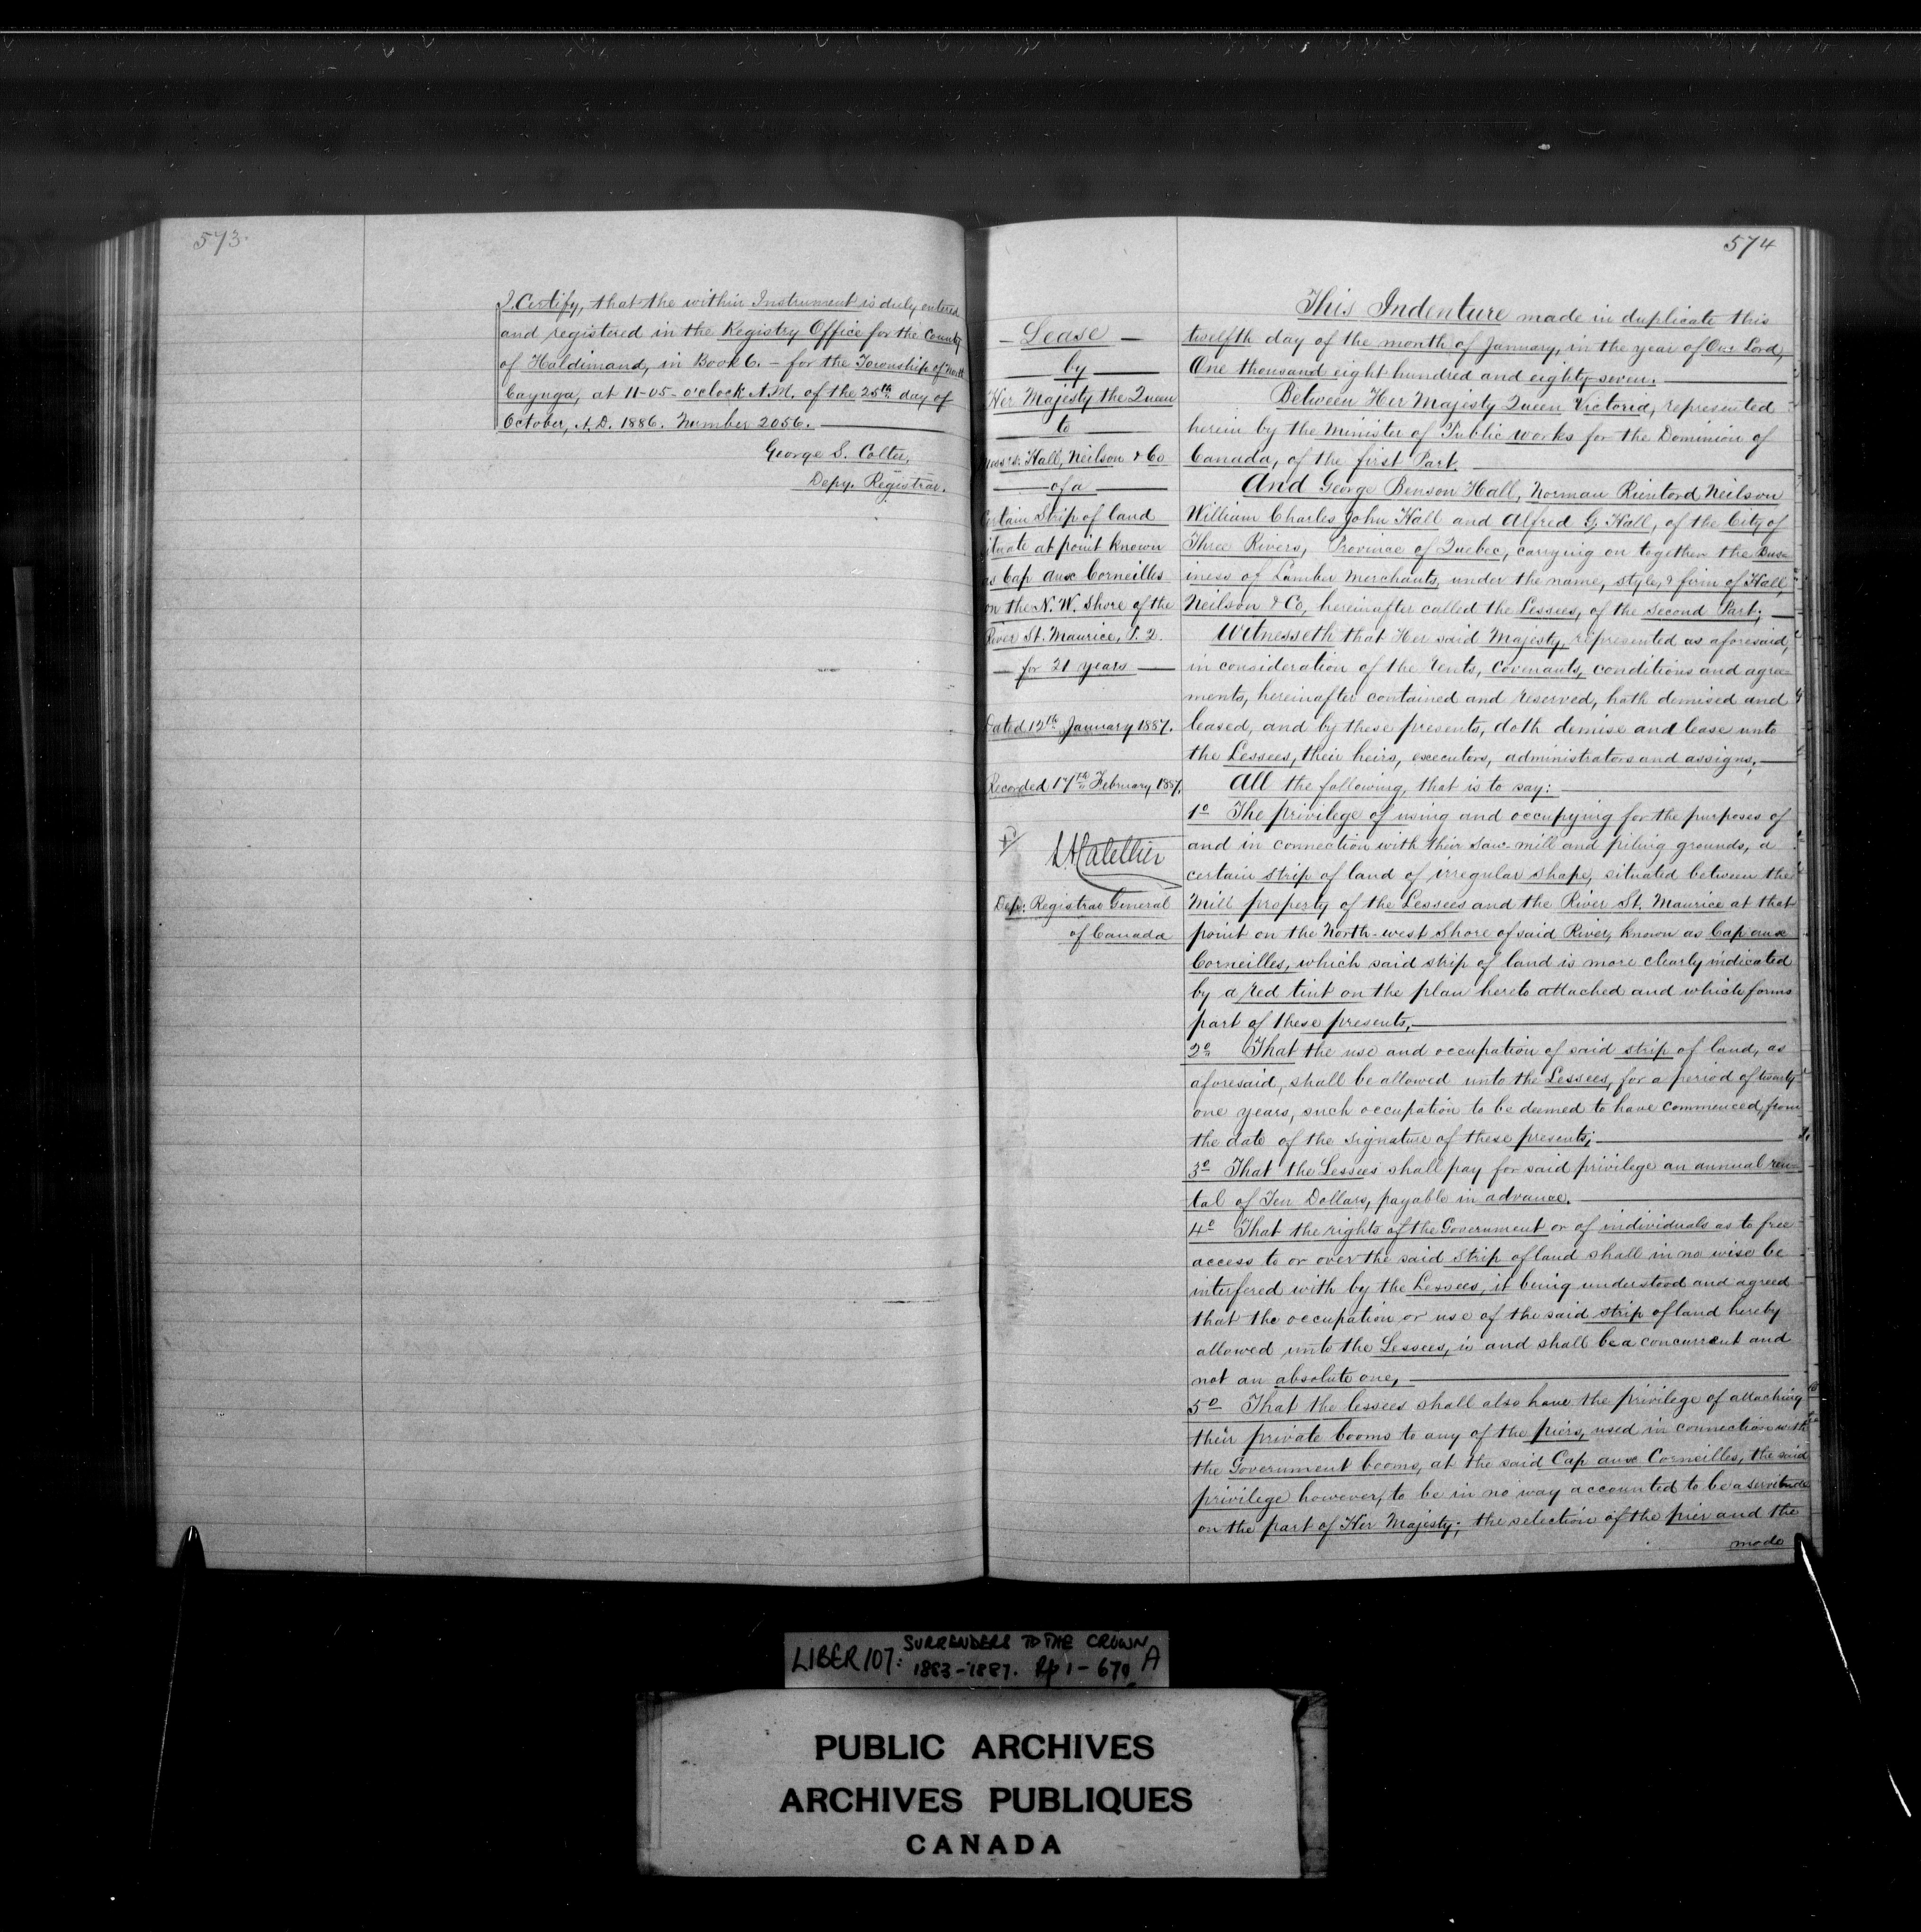 573.
I Certify, that the within Instrument is duly entered
and registered in the Registry Office for the County
of Haldimand, in Book 6. - for the Township of North
Cayuga, at 11-05- o'clock A.M. of the 25th day of
October, A.D. 1886. Number 2056.
George S. Colter,
Depy. Registrar.
574
- Lease -
by
Her Majesty the Queen
to
Messrs. Hall, Neilson & Co
of a
Certain Strip of land
situate at point known
as Cap aux Corneilles
on the N. W. Shore of the
River St. Maurice, P. Q.
- for 21 years -
Dated 12th January 1887.
Recorded 17th February 1887.
Dep: Registrar General
of Canada
This Indenture made in duplicate this
twelfth day of the month of January, in the year of Our Lord,
One thousand eight hundred and eighty-seven.
Between Her Majesty Queen Victoria, represented
herein by the Minister of Public Works for the Dominion of
Canada, of the first Part.
And George Benson Hall, Norman Neilson
William Charles John Hall and Alfred G. Hall, of the City of
Three Rivers, Province of Quebec, carrying on together the Bus-
iness of Lumber Merchants, under the name, style, & firm of Hall,
Neilson & Co, hereinafter called the Lessees, of the Second Part;
Witnesseth that Her said Majesty, represented as aforesaid,
in consideration of the rents, Covenants, conditions and agree-
ments, hereinafter contained and reserved, hath demised and
leased, and by these presents, doth demise and lease unto
the Lessees, their heirs, executors, administrators and assigns;
All the following, that is to say:
1o The privilege of using and occupying for the purposes of
and in connection with their Saw-mill and piling grounds, a
certain strip of land of irregular shape, situated between the
Mill property of the Lessees and the River St. Maurice at that
point on the North-west Shore of said River, known as Cap aux
Corneilles, which said strip of land is more clearly indicated
by a red tint on the plan hereto attached and which forms
part of these presents.
2o That the use and occupation of said strip of land, as
aforesaid, shall be allowed unto the Lessees, for a period of twenty-
one years, such occupation to be deemed to have commenced, from
the date of the signature of these presents;
3o That the Lessees shall pay for said privilege an annual ren-
tal of Ten Dollars, payable in advance.
4o That the rights of the Government or of individuals as to free
access to or over the said strip of land shall in no wise be
interfered with by the Lessees, it being understood and agreed
that the occupation or use of the said strip of land hereby
allowed unto the Lessees, is and shall be a concurrent and
not an absolute one,
5o That the lessees shall also have the privilege of attaching
their private booms to any of the piers, used in connection with
the Government booms, at the said Cap aux Corneilles, the said
privilege however, to be in no way accounted to be a servitude
on the part of Her Majesty; the selection of the pier and the
mode
LIBER 107: SURRENDERS TO THE CROWN
1883-1887. Pp 1-679 A
PUBLIC ARCHIVES
ARCHIVES PUBLIQUES
CANADA